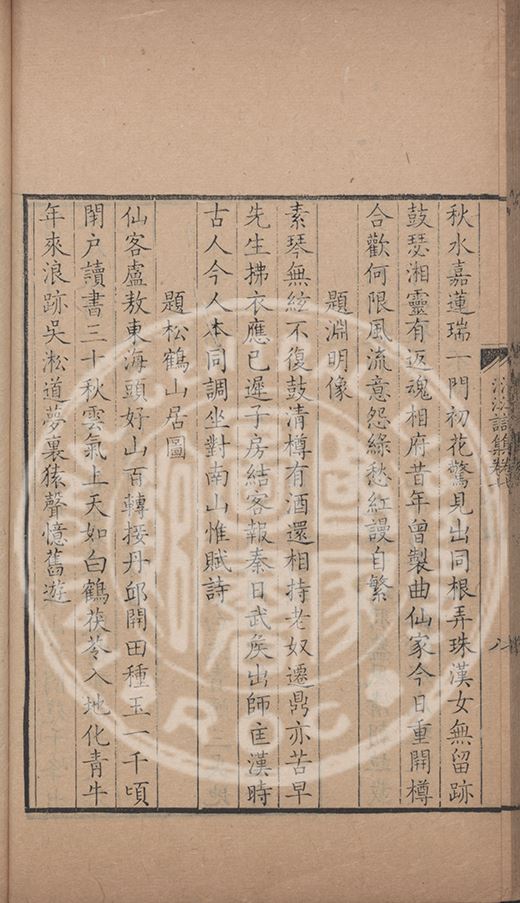 秋水嘉蓮瑞一門初花驚見出同根弄珠漢女無留跡
鼓瑟湘靈有返魂相府昔年曾製曲仙家今日重開樽
合歡何限風流意怨綠愁紅謾自繁
題淵明像
素琴無絃不復鼓清樽有酒還相持老奴遷鼎亦苦早
先生拂衣應已遲子房結客報秦日武矦出師匡漢時
古人今人本同調坐對南山惟賦詩
題松鶴山居圖
仙客盧敖東海頭好山百轉接丹邱開田種玉一千頃
閉户讀書三十秋雲氣上天如白鶴茯苓入地化青牛
年來浪跡吳淞道夢裏猿聲憶舊遊
詩集卷